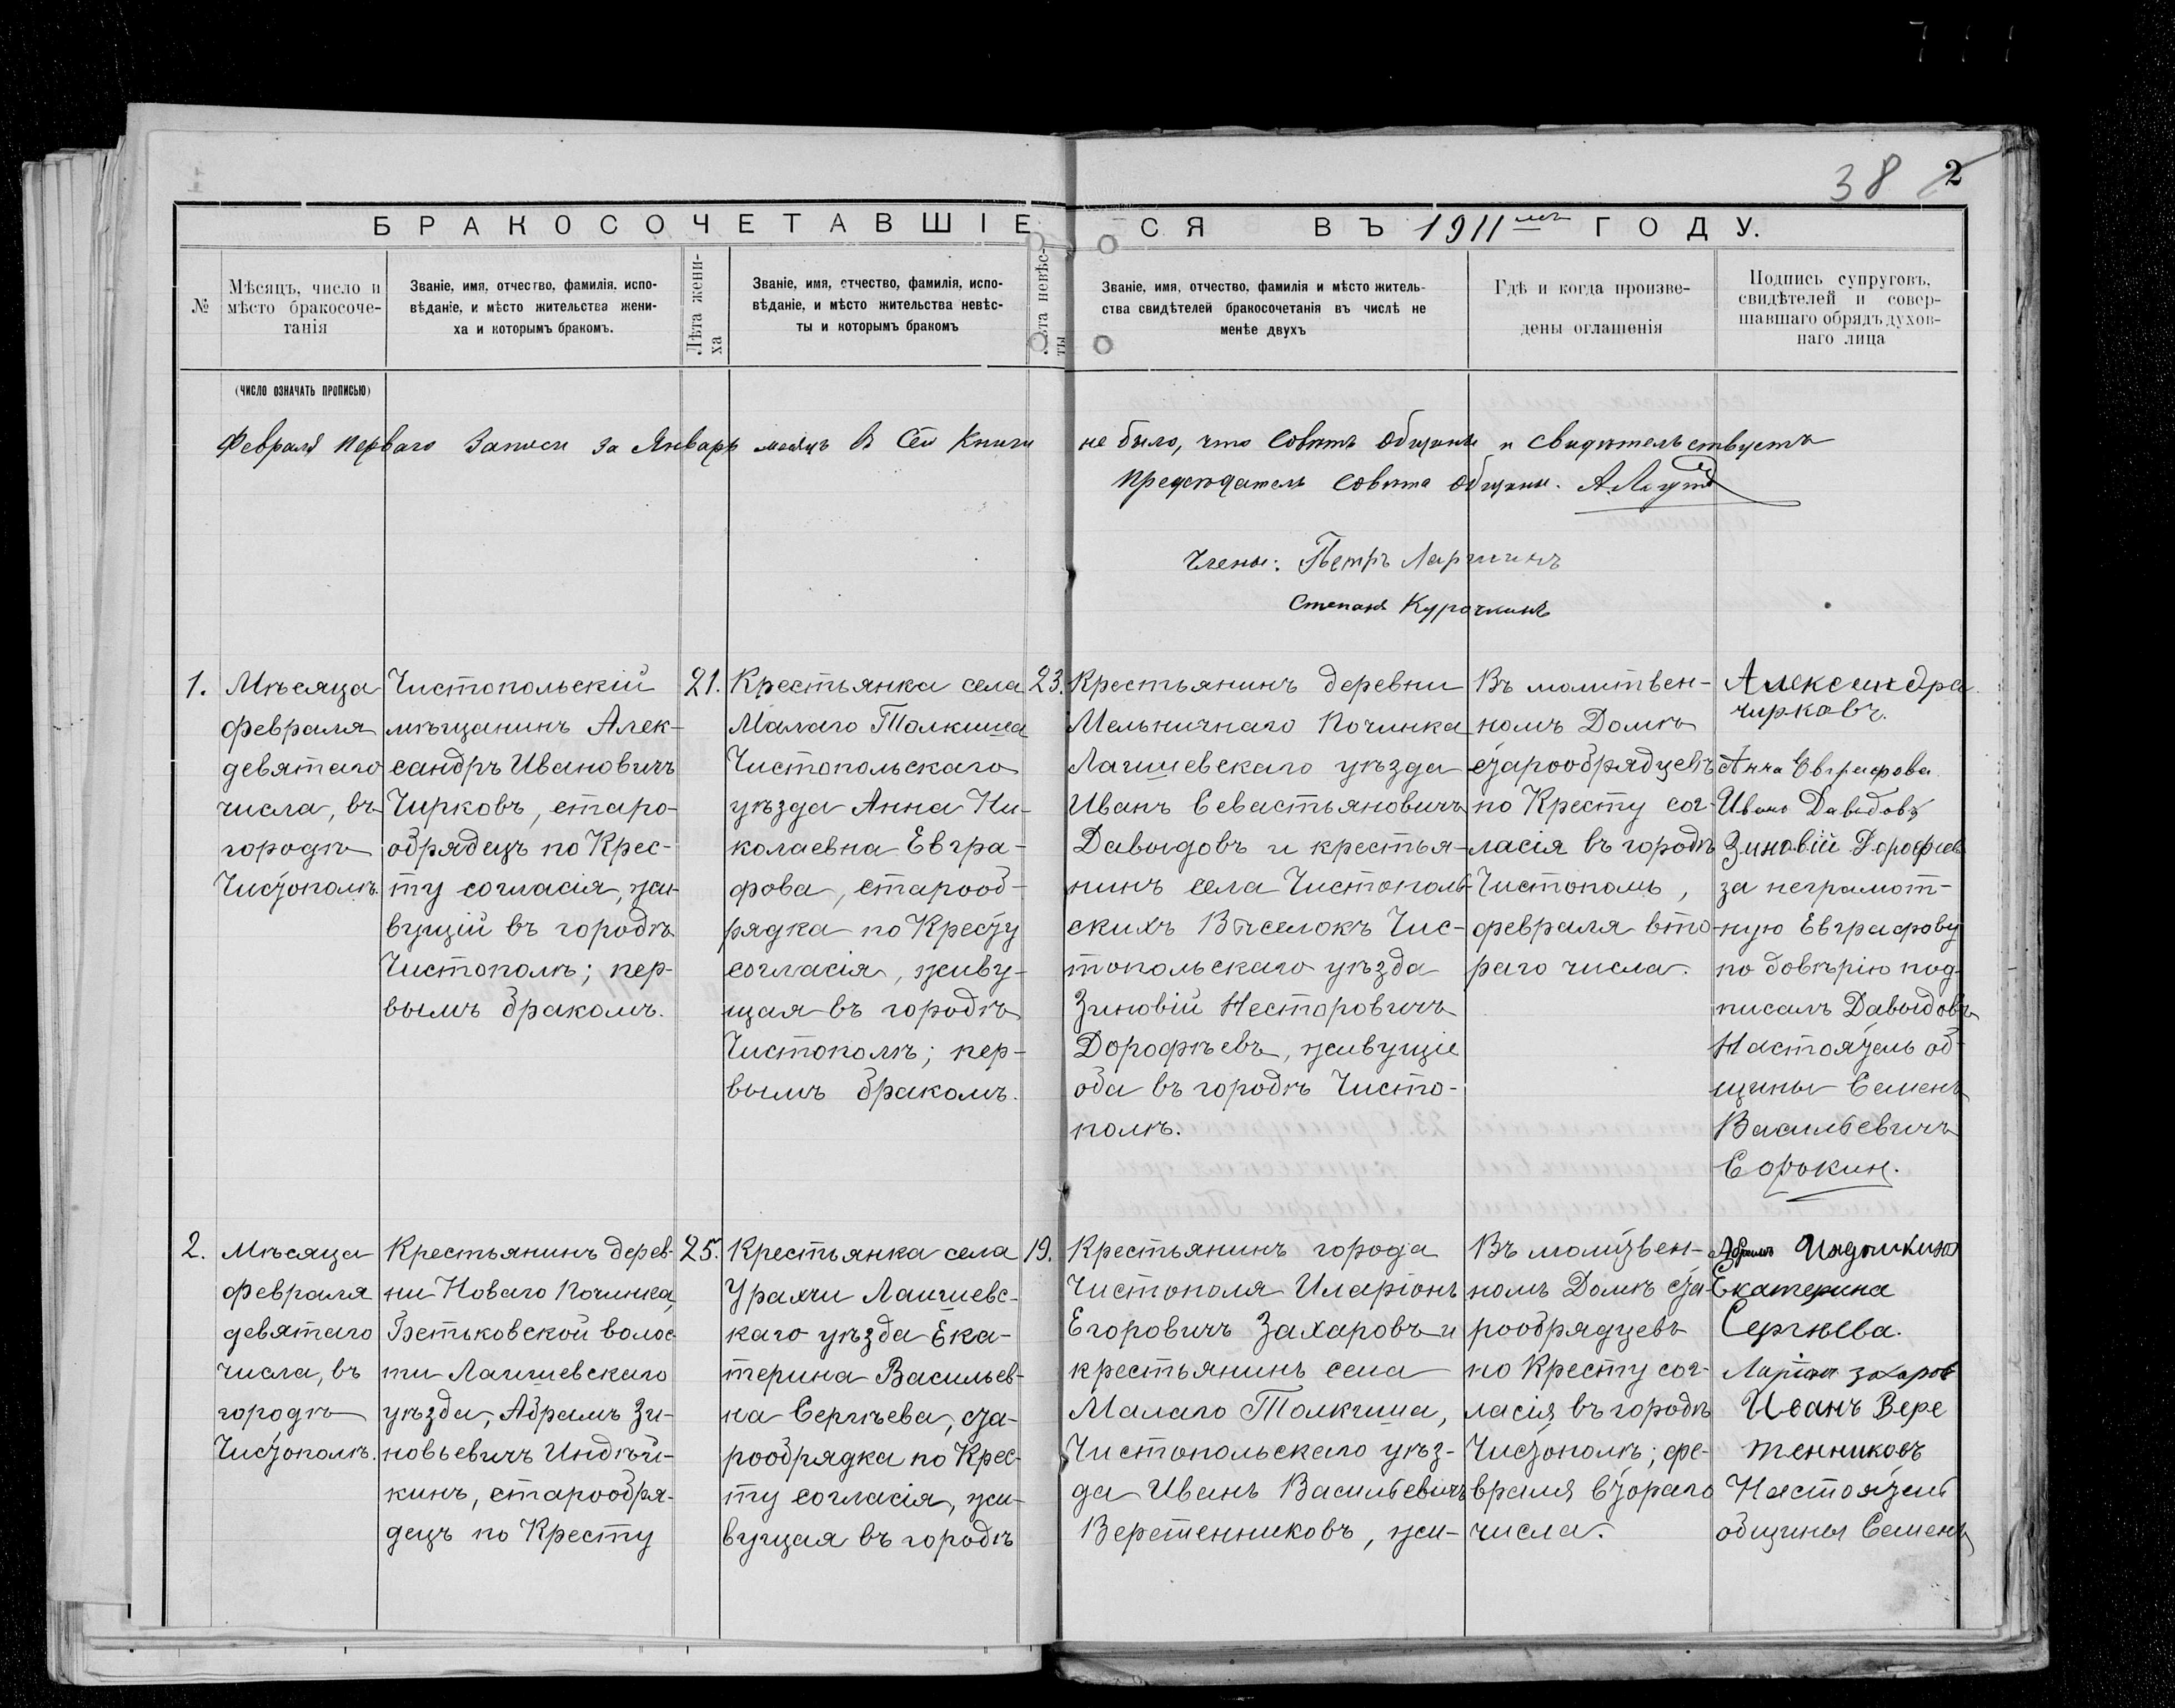 38 2
БРАКОСОЧЕТАВШІЕСЯ ВЪ 1911 ГОДУ.
№
Мѣсяцъ, число и
мѣсто бракосоче-
танія
Званіе, имя, отчество, фамилія, испо-
вѣданіе, и мѣсто жительства жени-
ха и которымъ бракомъ.
Лѣта жени-
ха
Званіе, имя, отчество, фамилія, испо-
вѣданіе, и мѣсто жительства невѣс-
ты и которымъ бракомъ
Лѣта невѣс-
ты
Званіе, имя, отчество, фамилія и мѣсто житель-
ства свидѣтелей бракосочетанія въ числѣ не
менѣе двухъ
Гдѣ и когда произве-
дены оглашенія
Подпись супруговъ,
свидѣтелей и совер-
шавшаго обрядъ духов-
наго лица
(ЧИСЛО ОЗНАЧАТЬ ПРОПИСЬЮ)
Февраля перваго Записи за Январь месяцъ в Сей Книги не было, что Советъ Общины и свидѣтельствуетъ
Председатель Совѣта Общины.
Члены: Петръ
Степанъ Курочкинъ
1.
Мѣсяца
февраля
девятаго
числа, въ
городѣ
Чистополѣ.
Чистопольскій
мѣщанинъ Алек-
сандръ Ивановичъ
Чирковъ, старо-
обрядецъ по Крес-
ту согласія, жи-
вущій въ городѣ
Чистополѣ; пер-
вымъ бракомъ.
21.
Крестьянка села
Малаго Толкиша
Чистопольскаго
уѣзда Анна Ни-
колаевна Евгра-
фова, старооб-
рядка по Кресту
согласія, живу-
щая въ городѣ
Чистополѣ; пер-
вымъ бракомъ.
23.
Крестьянинъ деревни
Мельничнаго Починка
Лаишевскаго уѣзда
Иванъ Севастьяновичъ
Давыдовъ и крестья-
нинъ села Чистополь-
скихъ Выселокъ Чис-
топольскаго уѣзда
Зиновій Несторовичъ
Дорофѣевъ, живущіе
оба въ городѣ Чисто-
полѣ.
Въ молитвен-
номъ Домѣ
старообрядцевъ
по Кресту сог-
ласія въ городѣ
Чистополь,
февраля вто-
раго числа.
Александра
чирковъ.
Анна Евграфова
Иванъ Давыдовъ
Зиновій Дорофеев
за неграмот-
ную Евграфову
по довѣрію под-
писалъ Давыдовъ
Настоятель об-
щины Семенъ
Васильевичъ
Сорокин.
2.
Мѣсяца
февраля
девятаго
числа, въ
городѣ
Чистополѣ.
Крестьянинъ дерев-
ни Новаго Починка,
Бетьковской волос-
ти Лаишевскаго
уѣзда, Абрамъ Зи-
новьевичъ Индѣй-
кинъ, старообря-
децъ по Кресту
25.
Крестьянка села
Урахчи Лаишевс-
каго уѣзда Ека-
терина Васильев-
на Сергѣева, ста-
рообрядка по Крес-
ту согласія, жи-
вущая въ городѣ
19.
Крестьянинъ города
Чистополя Иларіонъ
Егоровичъ Захаровъ и
крестьянинъ села
Малаго Толкиша,
Чистопольскаго уѣз-
да Иванъ Васильевичъ
Веретенниковъ, жи-
Въ молитвен-
номъ Домѣ ста-
рообрядцевъ
по Кресту сог-
ласія въ городѣ
Чистополѣ; фе-
враля втораго
числа.
Абрамъ
Екатерина
Сергѣева.
Ларіон захаров
Иванъ Вере
тенниковъ
Настоятель
общины Семенъ